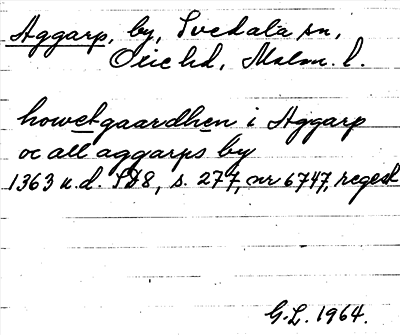 Aggarp, by, Svedala sn,
Oxie hd, Malm. l.
howetgaardhen i Aggarp
oc all aggarps by
1363 u.d. SD8, s. 277, nr 6747, regest
G.L. 1964.